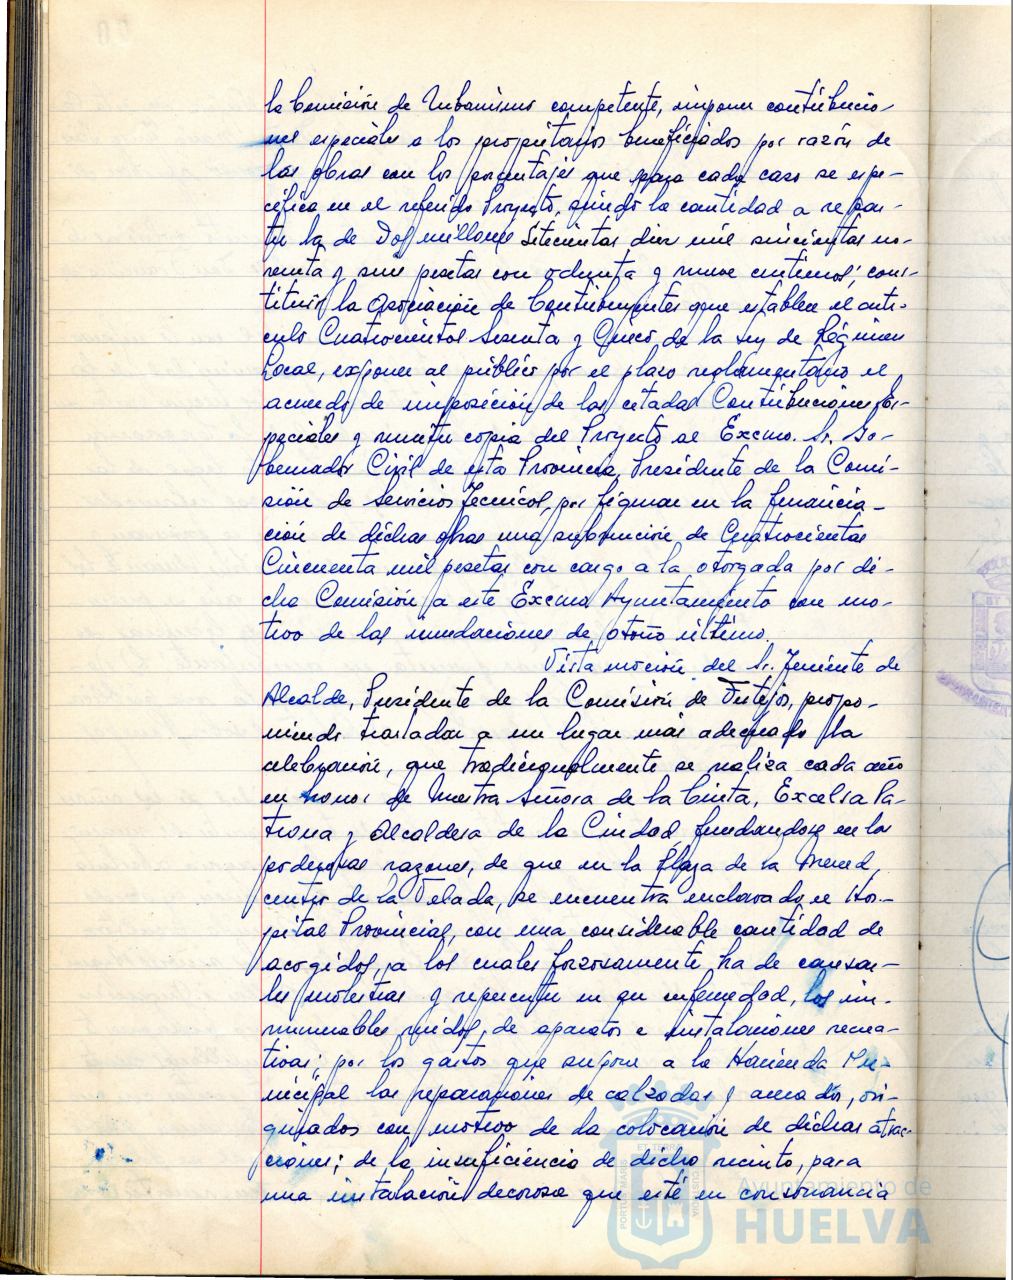 la Comisión de Urbanismo competente, imponer contribucio-
nes especiales a los propietarios beneficiados por razón de
las obras con los porcentajes que para cada caso se espe-
cifica en el referido Proyecto, siendo la cantidad a repar-
tir la de Dos millones Setecientas diez mil quinientas no-
venta y seis pesetas con ochenta y nueve centimos; cons-
tituir la Asociación de Contribuyentes que establece el artí-
culo Cuatrocientos Sesenta y Cinco de la Ley de Régimen
Local, exponer al público por el plazo reglamentario el
acuerdo de imposición de las citadas Contribuciones Es-
peciales y remitir copia del Proyecto al Excmo. Sr. Go-
bernador Civil de esta Provincia, Presidente de la Comi-
sión de Servicios Tecnicos, por figurar en la financia-
ción de dichas obras una subvención de Cuatrocientas
Cincuenta mil pesetas con cargo a la otorgada por di-
cha Comisión a este Excmo Ayuntamiento con mo-
tivo de las inundaciones de otoño último.
Vista moción del Sr. Teniente de
Alcalde, Presidente de la Comisión de Festejos, propo-
niendo trasladar a un lugar más adecuado la
celebración, que tradicionalmente se realiza cada año
en honor de Nuestra Señora de la Cinta, Excelsa Pa-
trona y Alcaldesa de la Ciudad, fundandose en las
poderosas razones, de que en la Plaza de la Merced,
centro de la Velada, se encuentra enclavado el Hos-
pital Provincial, con una considerable cantidad de
acogidos, a los cuales forzosamente, ha de causar-
les molestias y repercutir en su enfermedad, los in-
numerables ruidos, de aparatos e instalaciones recrea-
tivas; por los gastos que supone a la Hacienda Mu-
nicipal las reparaciones de calzadas y acerados, ori-
ginados con motivo de la colocación de dichas atrac-
ciones; de la insuficiencia de dicho recinto, para
una instalación decorosa que esté en consonancia
Ayuntamiento de
HUELVA